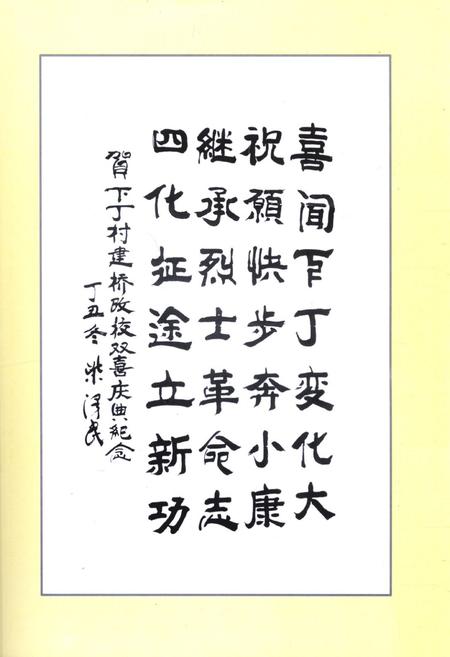 喜闻下丁变化大
祝願快步奔小康
継承烈士革命志
四化征途立新功
賀下丁村建桥改校双喜庆典紀念
丁丑冬 柴泽民